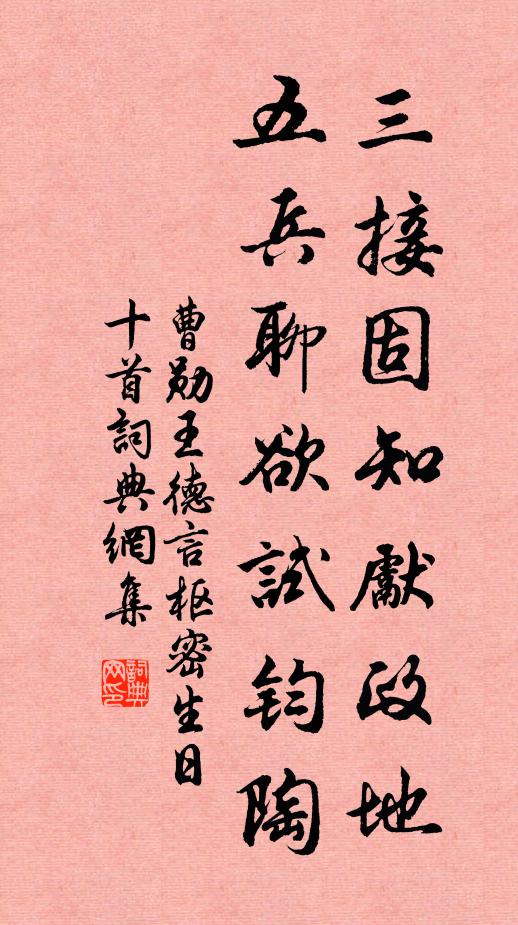 三接固知獻政地
五兵聊欲試鈞陶
曹勛王德言枢密生日
十首詞典網集
詞典網印